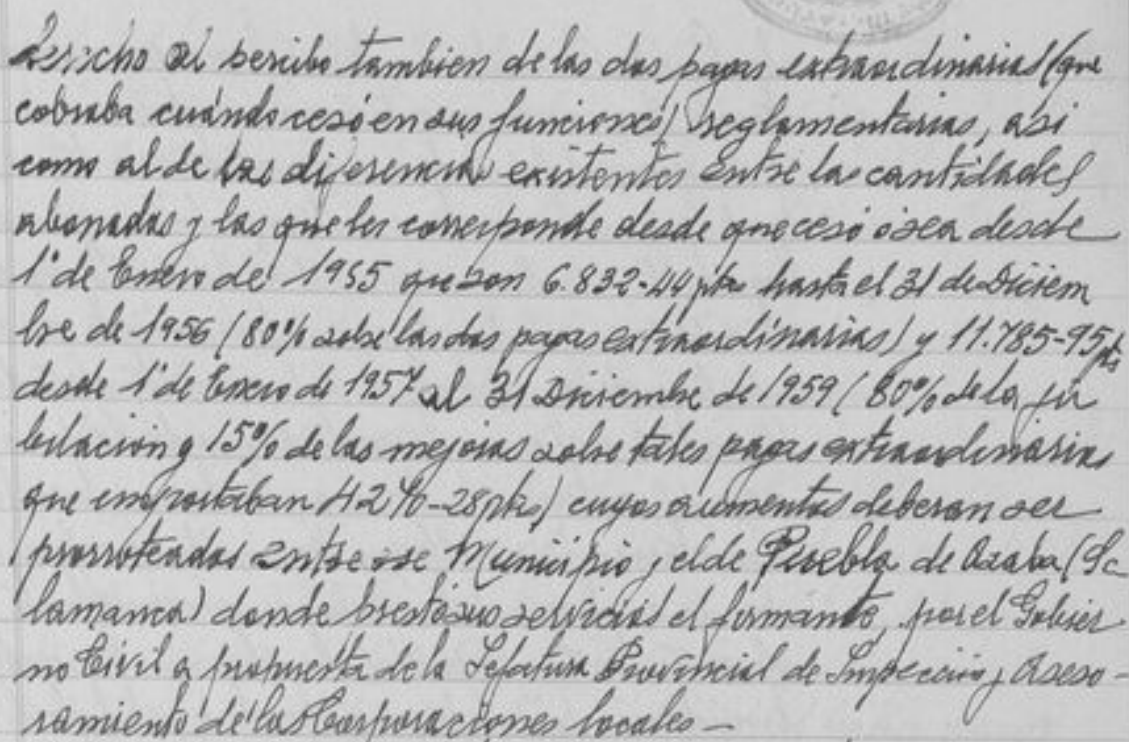 derecho al percibo tambien de las dos pagas extraordinarias (que
cobraba cuándo cesó en sus funciones) reglamentarias, asi
como al de las diferencias existentes entre las cantidades
abonadas y las que les corresponde desde que cesó ósea desde
1º de Enero de 1955 que son 6.832-44 ptas hasta el 31 de Diciem
bre de 1956 (80% sobre las dos pagas extraordinarias) y 11.785-95 pts
desde 1º de Enero de 1957 al 31 Diciembre de 1959 (80% de la ju
bilación y 15% de las mejoras sobre tales pagas extraordinarias
que importaban 4270-28 pts) cuyos aumentos deberan ser
prorroteados entre ese Municipio y el de Puebla de Azaba (Sa
lamanca) donde prestó sus servicios el firmante, por el Gobier
no Civil a propuesta de la Jefatura Provincial de Inspección y Aseso-
ramiento de las Corporaciones locales —